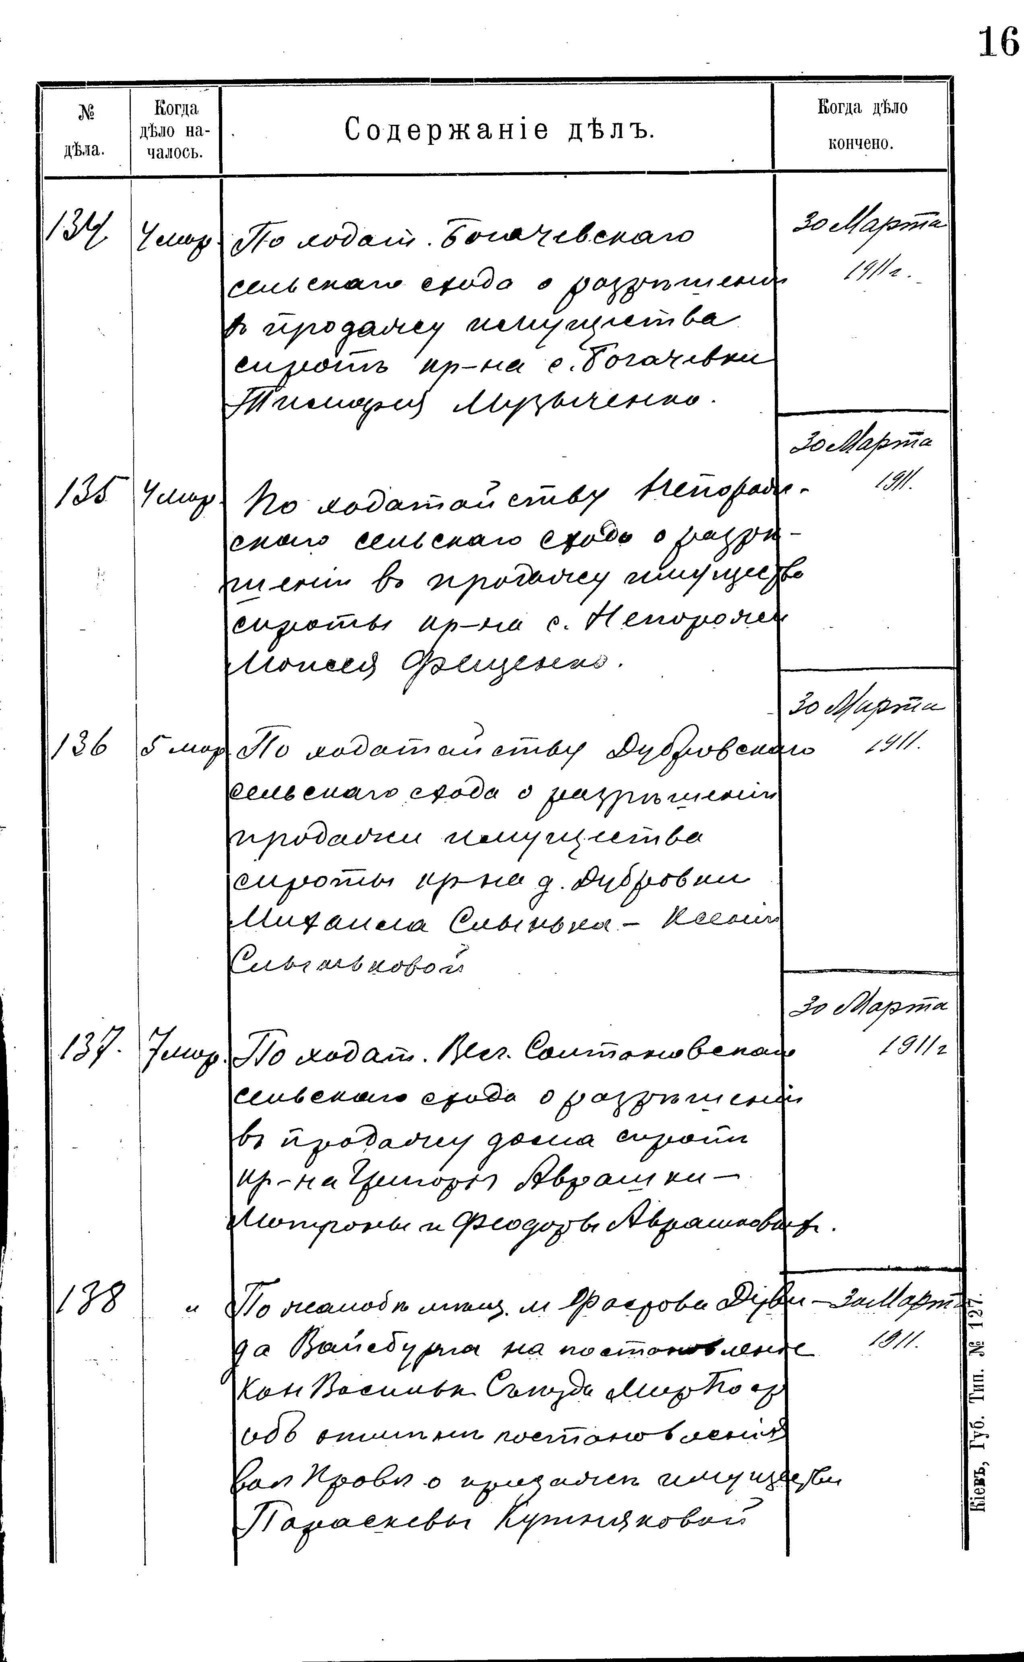 16
№ дѣла.
Когда дѣло на-
чалось.
Содержаніе дѣлъ.
Когда дѣло
кончено.
134 4 мар. По ходат. Богачевскаго 30 Марта
сельскаго схода о разрѣшеніи 1911 г.
въ продажу имущества
сиротъ кр-на с. Богачевки
Тимофея Музыченко.
30 Марта
135 4 мар. По ходатайству Непорож- 1911.
скаго сельскаго схода о разрѣ-
шеніи въ продажу имущества
сироты кр-на с. Непорожни
Моисея Фещенко.
30 Марта
136 5 мар По ходатайству Дубровскаго 1911.
сельскаго схода о разрѣшеніи
продажи имущества
сироты кр-на д. Дубровки
Михаила Слынька - Ксеніи
Слыньковой
30 Марта
137. 7 мар. По ходат. Солтановскаго 1911 г
сельскаго схода о разрѣшеніи
въ продажу дома сиротъ
кр-на Григорія Аврашки -
Мотроны и Феодоры Аврашковыхъ.
138 " По жалобѣ мѣщ. м Фастова Дуви- 30 Март
да Вайсбурга на постановленіе 1911.
Васильк. Съѣзда Мир Поср
объ отмѣнѣ постановленія
Вол Правл о продажѣ имущества
Параскевы Кутняковой
Кіевъ, Губ. Тип. № 127.